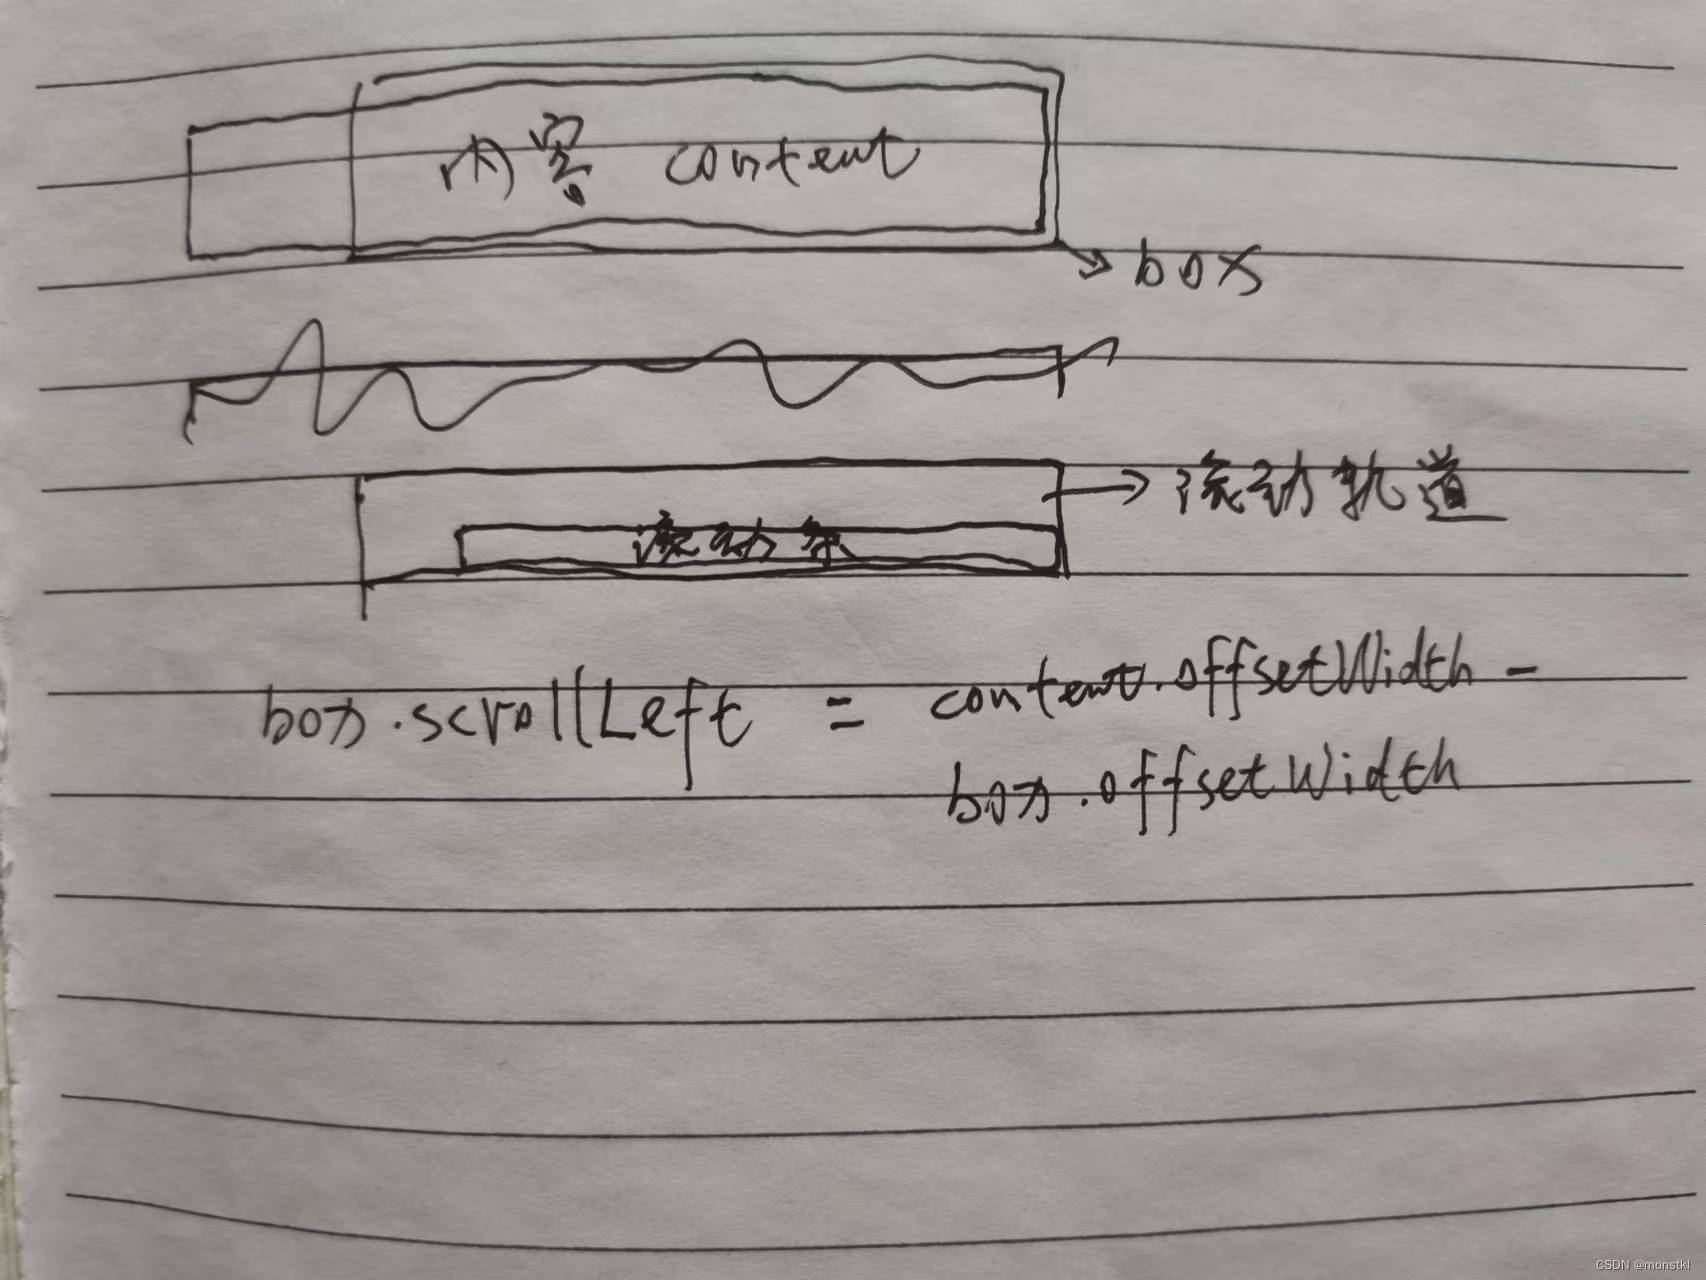 内容 content
box
滚动轨道
滚动条
box.scrollLeft = content.offsetWidth -
box.offsetWidth
CSDN @monstkl